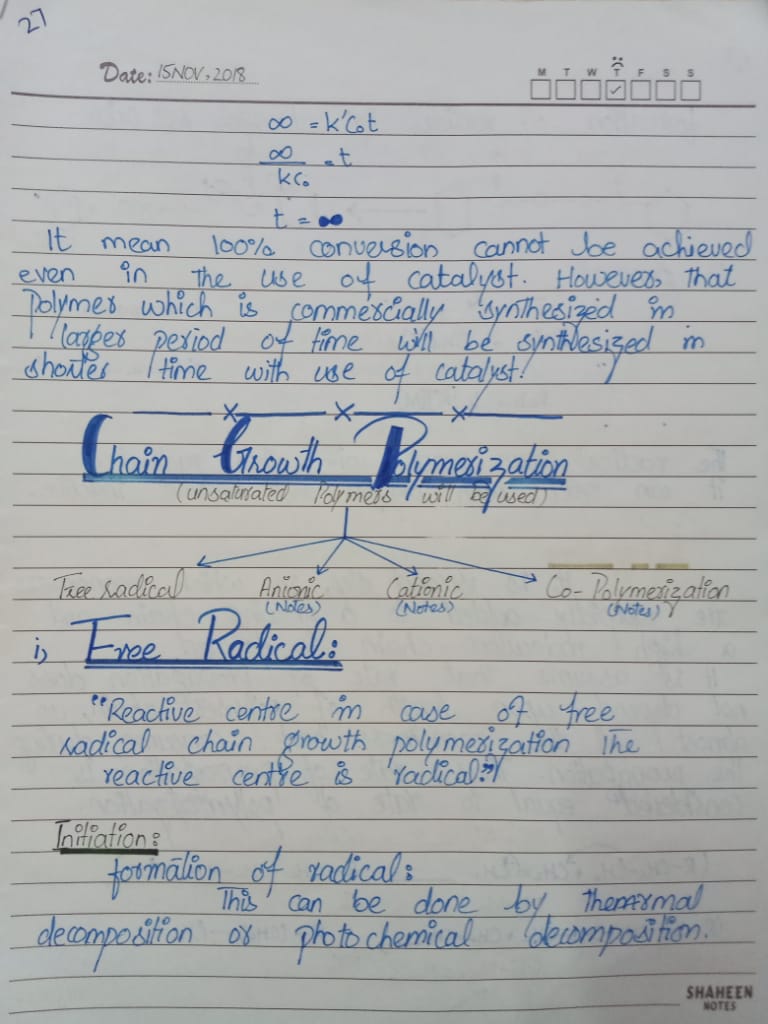 27
Date: 15 NOV, 2018
M T W T F S S
∞ = k'C₀t
∞/kC₀ = t
t = ∞
It mean 100% conversion cannot be achieved
even in the use of catalyst. However, that
Polymer which is commercially synthesized in
larger period of time will be synthesized in
shorter time with use of catalyst.
Chain Growth Polymerization
(unsaturated Polymers will be used)
Free radical Anionic Cationic Co-Polymerization
(Notes) (Notes) (Notes)
i, Free Radical:
"Reactive centre in case of free
radical chain growth polymerization The
reactive centre is radical."
Initiation:
formation of radical:
This can be done by thermal
decomposition or photochemical decomposition.
SHAHEEN
NOTES